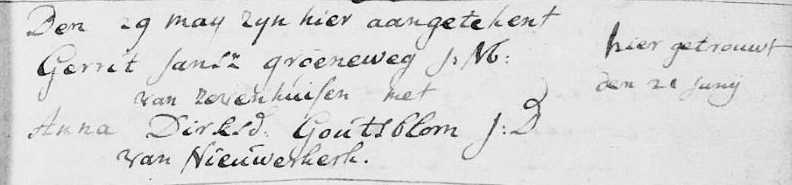 Den 29 may zyn hier aangetekent
Gerrit Jansz groeneweg J: M:
van zevenhuisen met
Anna Dirksd: Goutsblom J: D
van Nieuwerkerk.
hier getrouwt
den 21 Juny